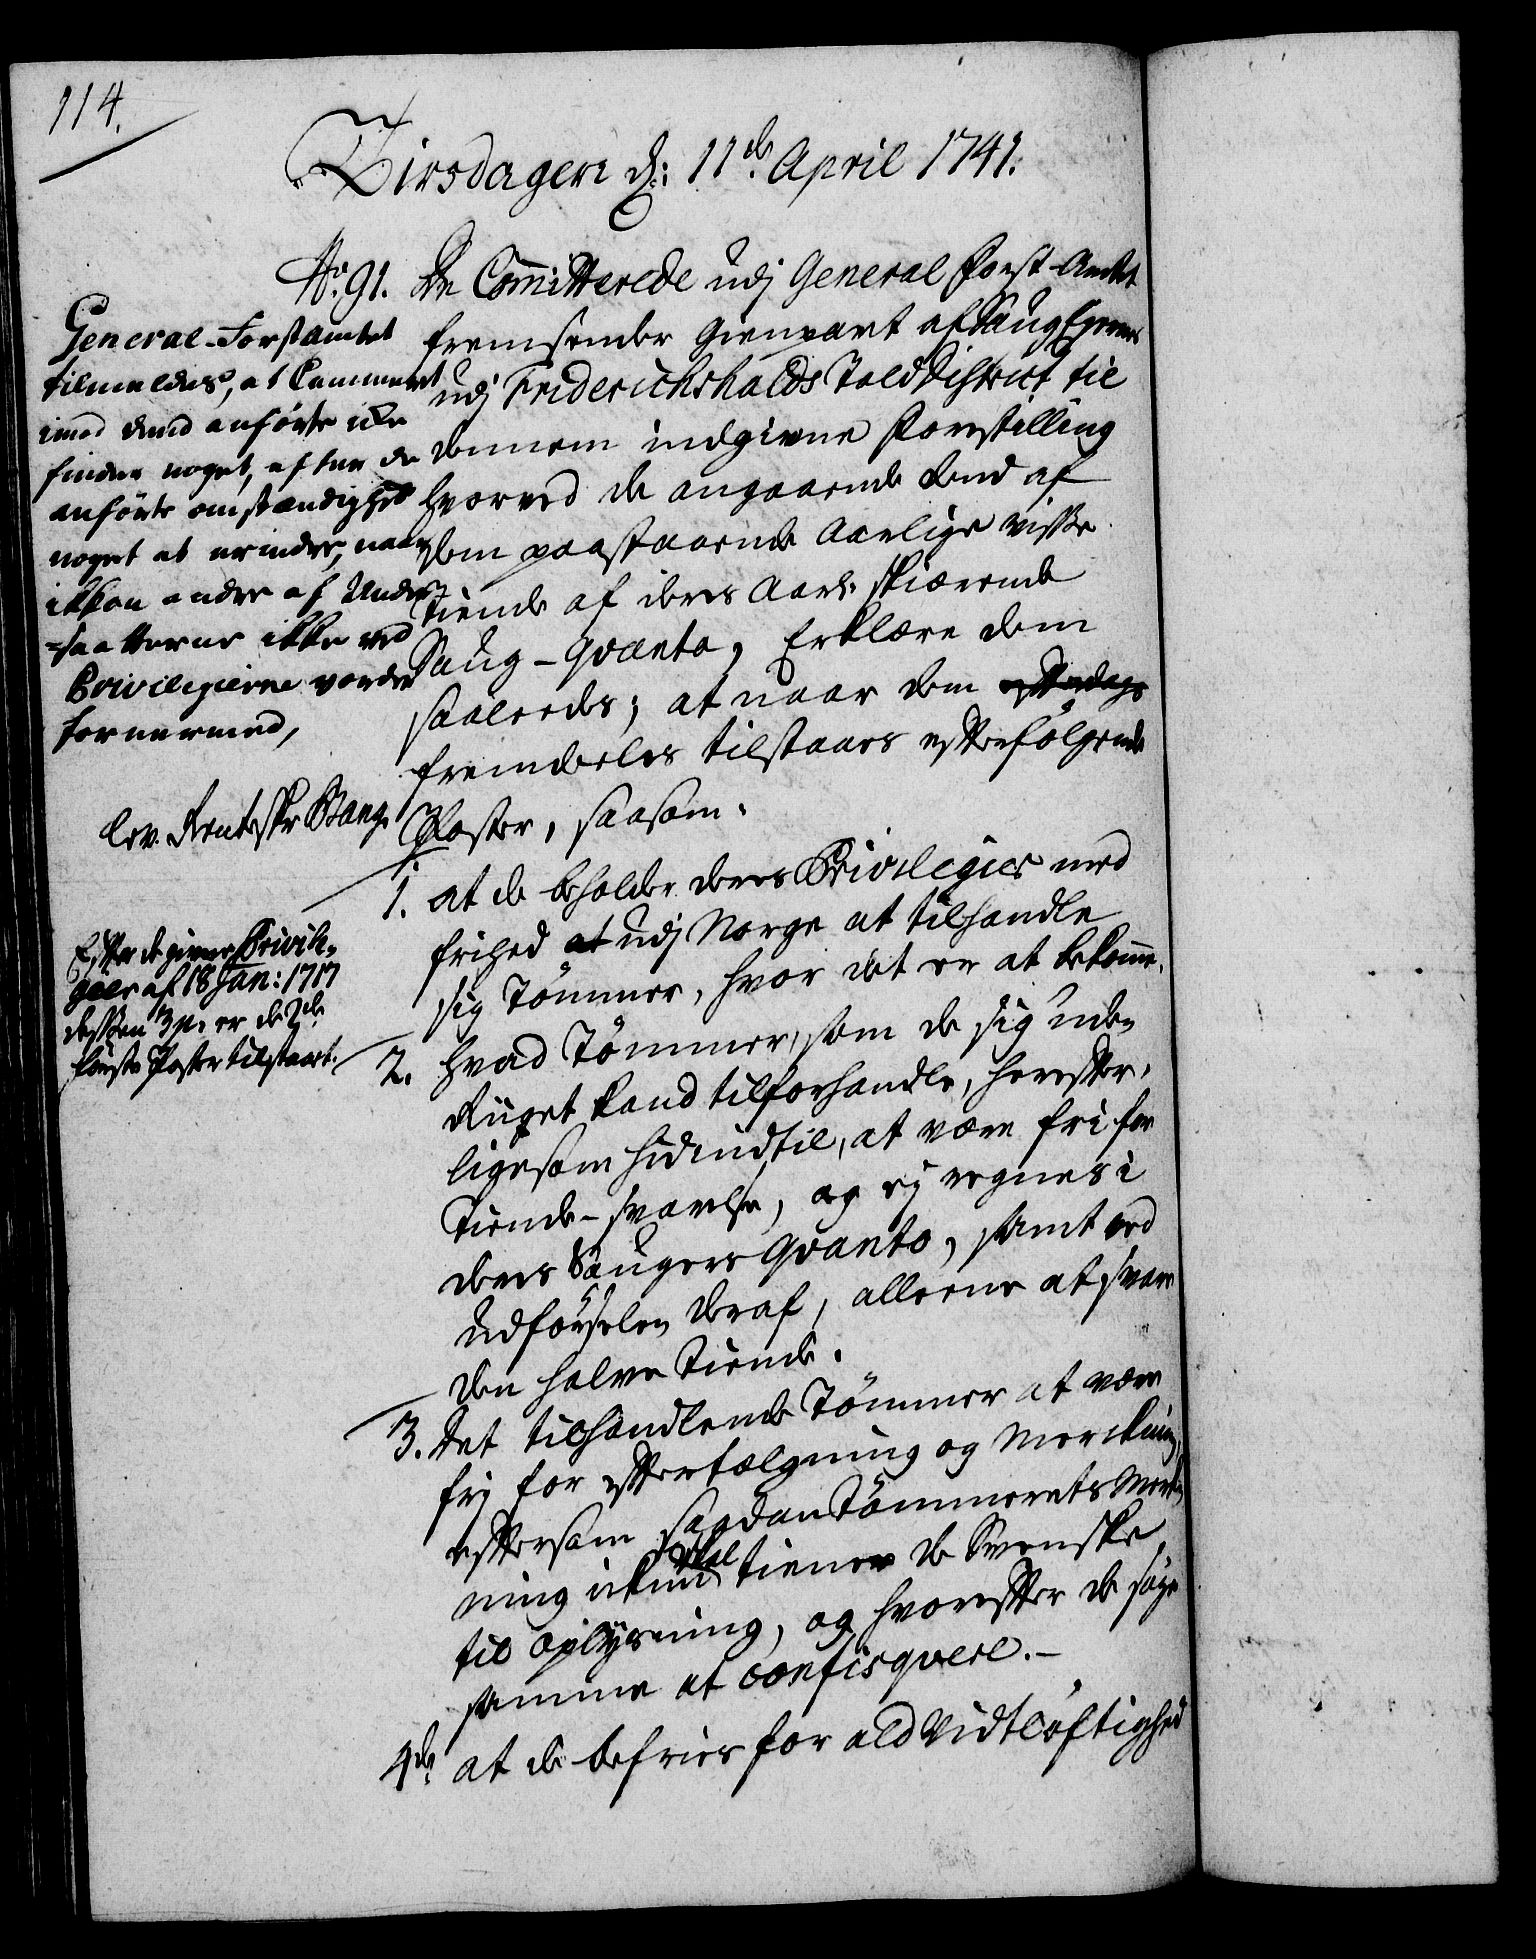 114.
Tirsdagen d: 11de April 1741.
No. 91. De Committerede udj General Forst-Amtet
fremsender Gienpart af Saug Eyernes
udj Friderichshalds Told District til
dennem indgivne Forestilling
hvorved de angaaende dend af
dem paastaaende Aarlige visse
Tiende af deres Aarl: skiærende
Saug-Qvanta, Erklære dem
saaleedes; at naar dem
fremdeeles tilstaaes efterfølgende
Poster, saasom:
1. at de beholder deres Privilegier med
frihed at udj Norge at tilhandle
sig Tömmer, hvor det er at bekomme.
2. hvad Tömmer, som de sig uden
Riiget kand tilforhandle, herefter,
ligesom hidindtil, at være fri for
Tiende-svarelse, og ej regnes i
deres Saugers Qvanto, samt ved
Udförselen deraf, alleene at svare
den halve Tiende.
3. Det tilhandlende Tömmer at være
frj for efterfælgning og Merckning,
eftersom saadan Tömmerets Merk-
ning ickun skal tiene de Svenske
til Oplysning, og hvorefter de söge
samme at confisqvere.-
4de at de befries for ald Vidtlöftighed
General-Forstamtet
tilmeldes, at Cammeret
imod dend anförte icke
finder noget, efter de
anförte omstændighed
noget at erindre, naar
ikkon andre af Under-
=saatterne ikke ved
Privilegierne vorder
fornermed,
lev. Renteskr Bang.
Efter de givne Privile-
gier af 18 Jan: 1717
dessen 3 p. er de 2de
förste Poster tilstaaet.